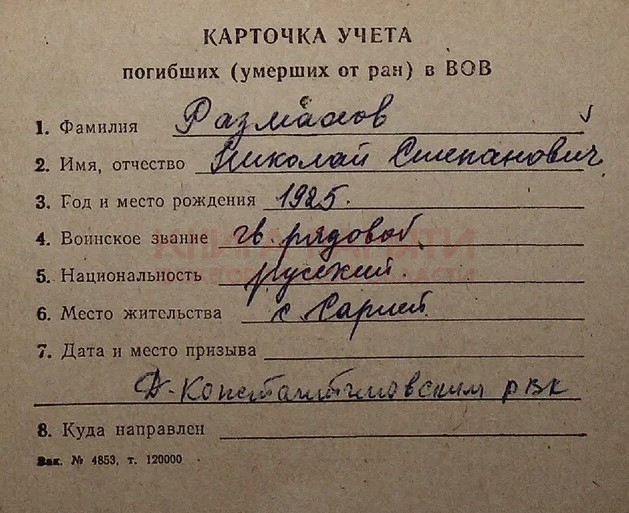 КАРТОЧКА УЧЕТА
погибших (умерших от ран) в ВОВ
1. Фамилия Размахов
2. Имя, отчество Николай Степанович
3. Год и место рождения 1925.
4. Воинское звание гв. рядовой
КНИГА ПАМЯТИ
5. Национальность русский.
6. Место жительства с. Сарлей
7. Дата и место призыва
Д-Константиновским рвк
8. Куда направлен
Зак. № 4853, т. 120000